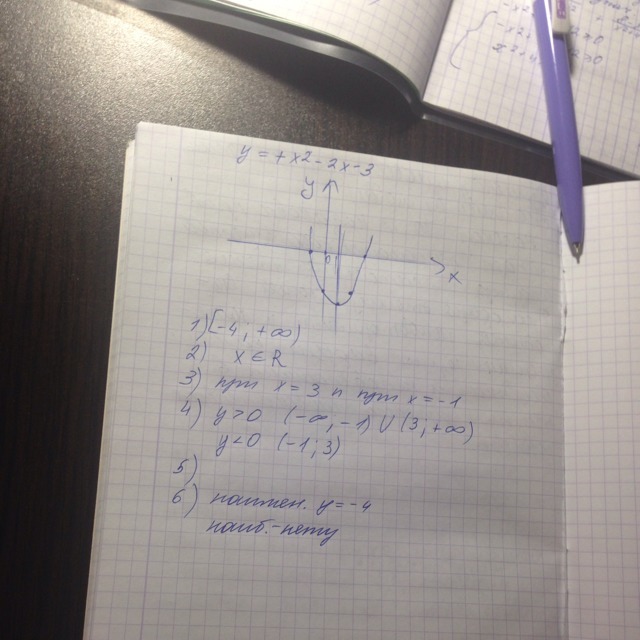 y = +x2-2x-3
y
0
x
1) [-4; +∞)
2) x ∈ R
3) при x = 3 и при x = -1
4) y>0 (-∞, -1) ∪ (3; +∞)
y<0 (-1; 3)
5)
6) наимен. y = -4
наиб. - нету